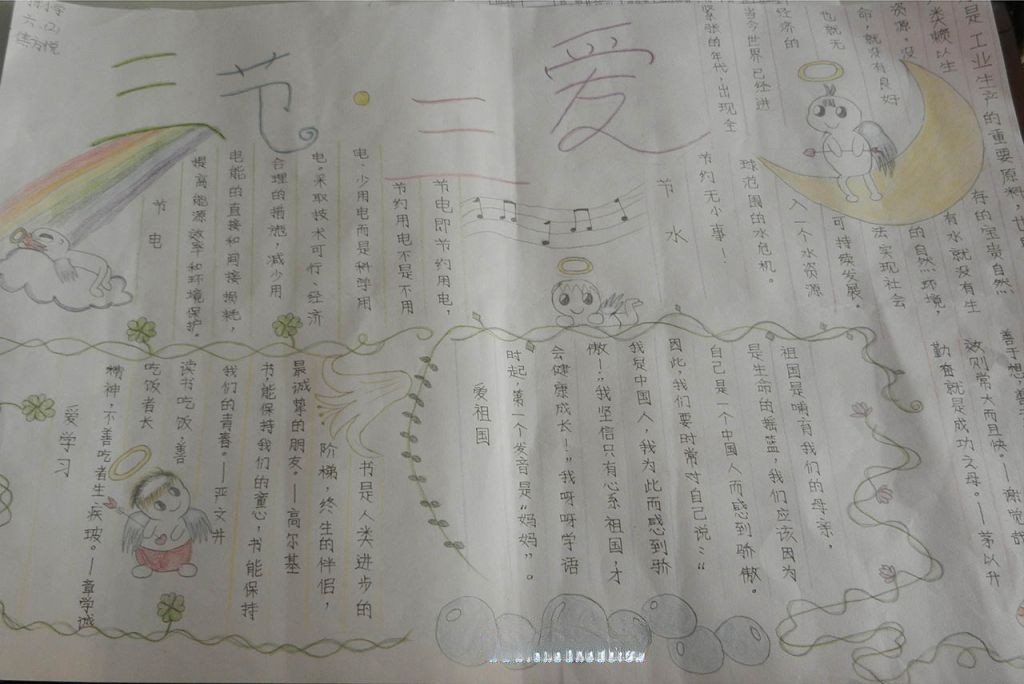 二节·三爱
是工业生产的重要原料，世
类赖以生存的宝贵自然
资源，没有水就没有生
命，就没有良好的自然环境，
也就无法实现社会
经济的可持续发展。
当今世界已经进入一个水资源
紧张的年代，出现全球范围的水危机。
节约无小事！
节水
节电即节约用电，
节约用电不是不用
电、少用电而是科学用
电。采取技术可行、经济
合理的措施，减少用
电能的直接和间接损耗，
提高能源效率和环境保护。
节电
善于想、善于
效则常大而且快。——谢觉哉
勤奋就是成功之母。——茅以升
祖国是哺育我们的母亲，
是生命的摇篮，我们应该因为
自己是一个中国人而感到骄傲。
因此，我们要时常对自己说：“
我是中国人，我为此而感到骄
傲！”我坚信只有心系祖国，才
会健康成长！”我呀呀学语
时起，第一个发音是“妈妈”。
爱祖国
书是人类进步的
阶梯，终生的伴侣，
最诚挚的朋友。——高尔基
书能保持我们的童心，书能保持
我们的青春。——严文井
读书吃饭，善
吃饭者长
精神，不善吃者生疾玻。——章学诚
爱学习